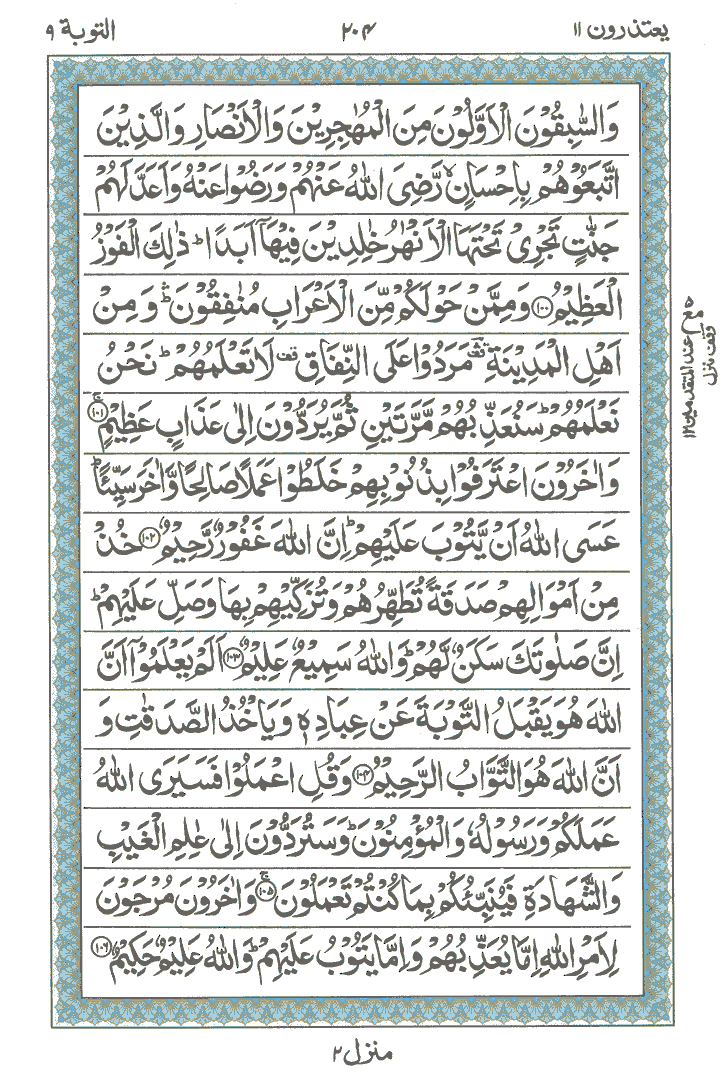 یعتذرون ۱۱
۲۰۴
التوبة ۹
وَالسّٰبِقُوْنَ الْاَوَّلُوْنَ مِنَ الْمُهٰجِرِيْنَ وَالْاَنْصَارِ وَالَّذِيْنَ
اتَّبَعُوْهُمْ بِاِحْسَانٍ ۙ رَّضِیَ اللّٰهُ عَنْهُمْ وَرَضُوْا عَنْهُ وَاَعَدَّ لَهُمْ
جَنّٰتٍ تَجْرِیْ تَحْتَهَا الْاَنْهٰرُ خٰلِدِيْنَ فِيْهَآ اَبَدًا ؕ ذٰلِكَ الْفَوْزُ
الْعَظِيْمُ ۝۱۰۰ وَمِمَّنْ حَوْلَكُمْ مِّنَ الْاَعْرَابِ مُنٰفِقُوْنَ ۛؕ وَمِنْ
اَهْلِ الْمَدِيْنَةِ ۛؔ مَرَدُوْا عَلَی النِّفَاقِ ۫ لَا تَعْلَمُهُمْ ؕ نَحْنُ
نَعْلَمُهُمْ ؕ سَنُعَذِّبُهُمْ مَّرَّتَيْنِ ثُمَّ يُرَدُّوْنَ اِلٰی عَذَابٍ عَظِيْمٍ ۝۱۰۱ۚ
وَاٰخَرُوْنَ اعْتَرَفُوْا بِذُنُوْبِهِمْ خَلَطُوْا عَمَلًا صَالِحًا وَّاٰخَرَ سَيِّئًا ؕ
عَسَی اللّٰهُ اَنْ يَّتُوْبَ عَلَيْهِمْ ؕ اِنَّ اللّٰهَ غَفُوْرٌ رَّحِيْمٌ ۝۱۰۲ خُذْ
مِنْ اَمْوَالِهِمْ صَدَقَةً تُطَهِّرُهُمْ وَتُزَكِّيْهِمْ بِهَا وَصَلِّ عَلَيْهِمْ ؕ
اِنَّ صَلٰوتَكَ سَكَنٌ لَّهُمْ ؕ وَاللّٰهُ سَمِيْعٌ عَلِيْمٌ ۝۱۰۳ اَلَمْ يَعْلَمُوْٓا اَنَّ
اللّٰهَ هُوَ يَقْبَلُ التَّوْبَةَ عَنْ عِبَادِهٖ وَيَاْخُذُ الصَّدَقٰتِ وَ
اَنَّ اللّٰهَ هُوَ التَّوَّابُ الرَّحِيْمُ ۝۱۰۴ وَقُلِ اعْمَلُوْا فَسَيَرَی اللّٰهُ
عَمَلَكُمْ وَرَسُوْلُهٗ وَالْمُؤْمِنُوْنَ ؕ وَسَتُرَدُّوْنَ اِلٰی عٰلِمِ الْغَيْبِ
وَالشَّهَادَةِ فَيُنَبِّئُكُمْ بِمَا كُنْتُمْ تَعْمَلُوْنَ ۝۱۰۵ۚ وَاٰخَرُوْنَ مُرْجَوْنَ
لِاَمْرِ اللّٰهِ اِمَّا يُعَذِّبُهُمْ وَاِمَّا يَتُوْبُ عَلَيْهِمْ ؕ وَاللّٰهُ عَلِيْمٌ حَكِيْمٌ ۝۱۰۶
مع عند المتقدمین ۱۲
وقف منزل
منزل ۲